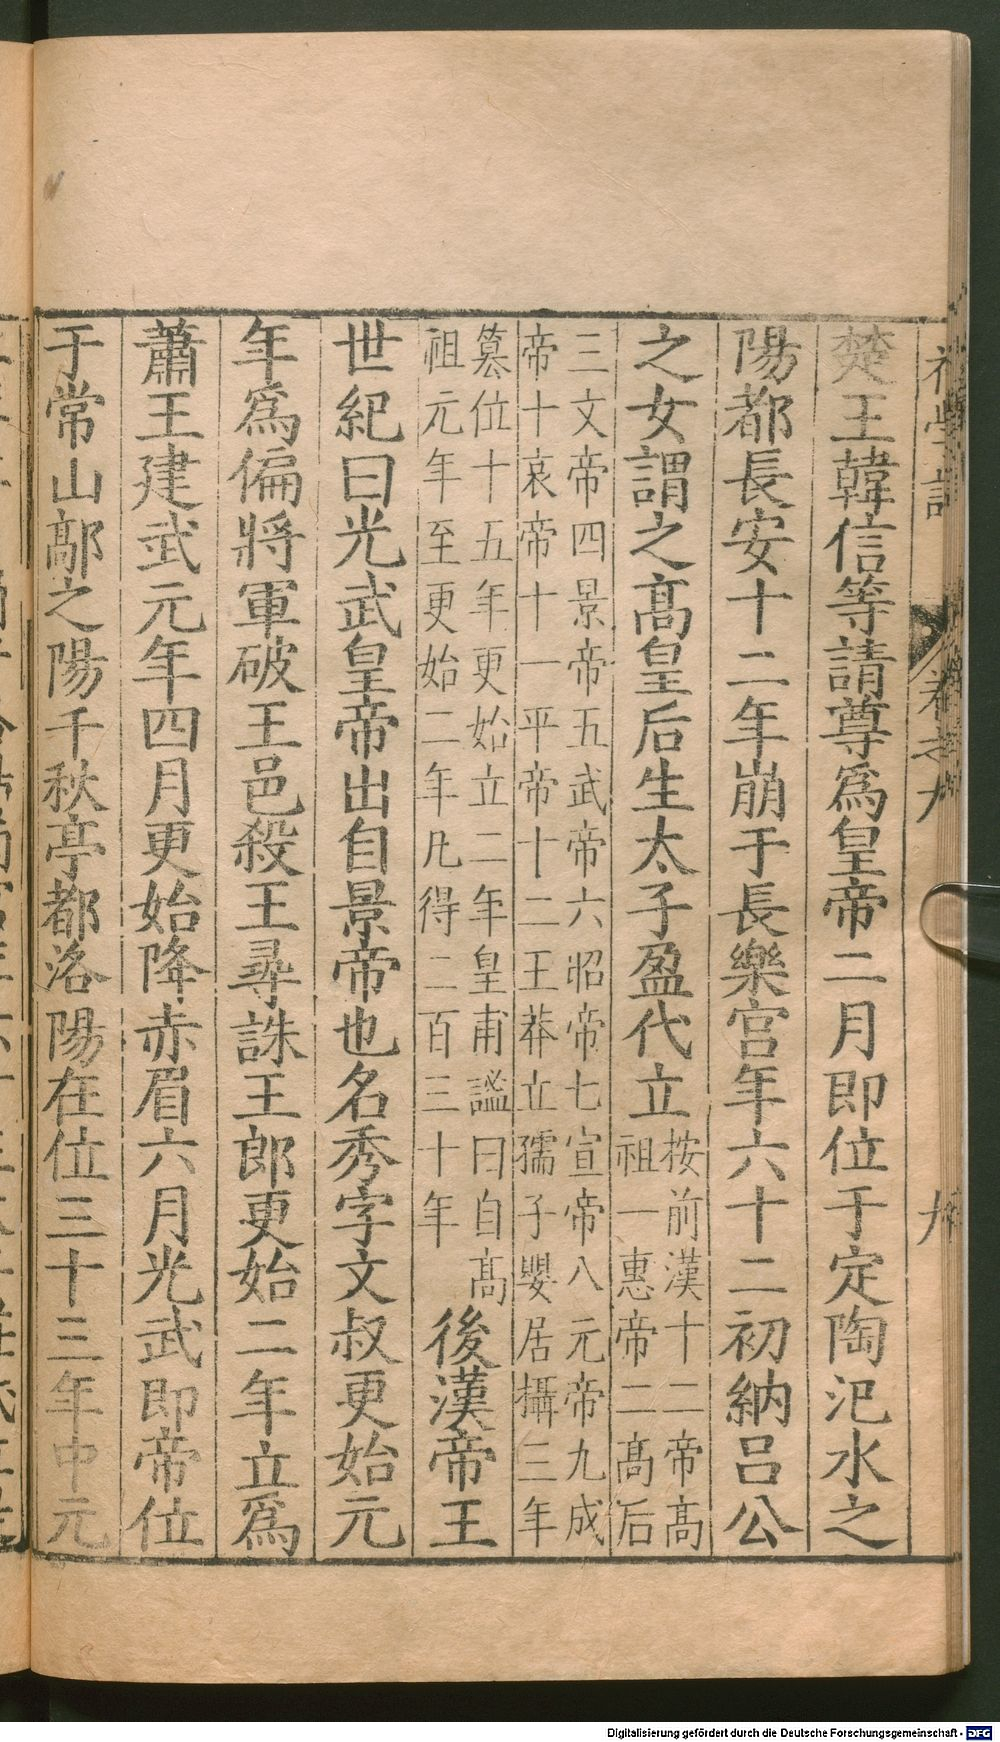 楚王韓信等請尊爲皇帝二月即位于定陶汜水之
陽都長安十二年崩于長樂宫年六十二初納吕公
之女謂之髙皇后生太子盈代立按前漢十二帝髙
祖一惠帝二髙后
三文帝四景帝五武帝六昭帝七宣帝八元帝九成
帝十哀帝十一平帝十二王莽立孺子嬰居攝三年
簒位十五年更始立二年皇甫謐曰自髙
祖元年至更始二年凡得二百三十年
後漢帝王
世紀曰光武皇帝出自景帝也名秀字文叔更始元
年爲偏將軍破王邑殺王尋誅王郎更始二年立爲
蕭王建武元年四月更始降赤眉六月光武即帝位
于常山鄗之陽千秋亭都洛陽在位三十三年中元
卷之九
九
Digitalisierung gefördert durch die Deutsche Forschungsgemeinschaft - DFG